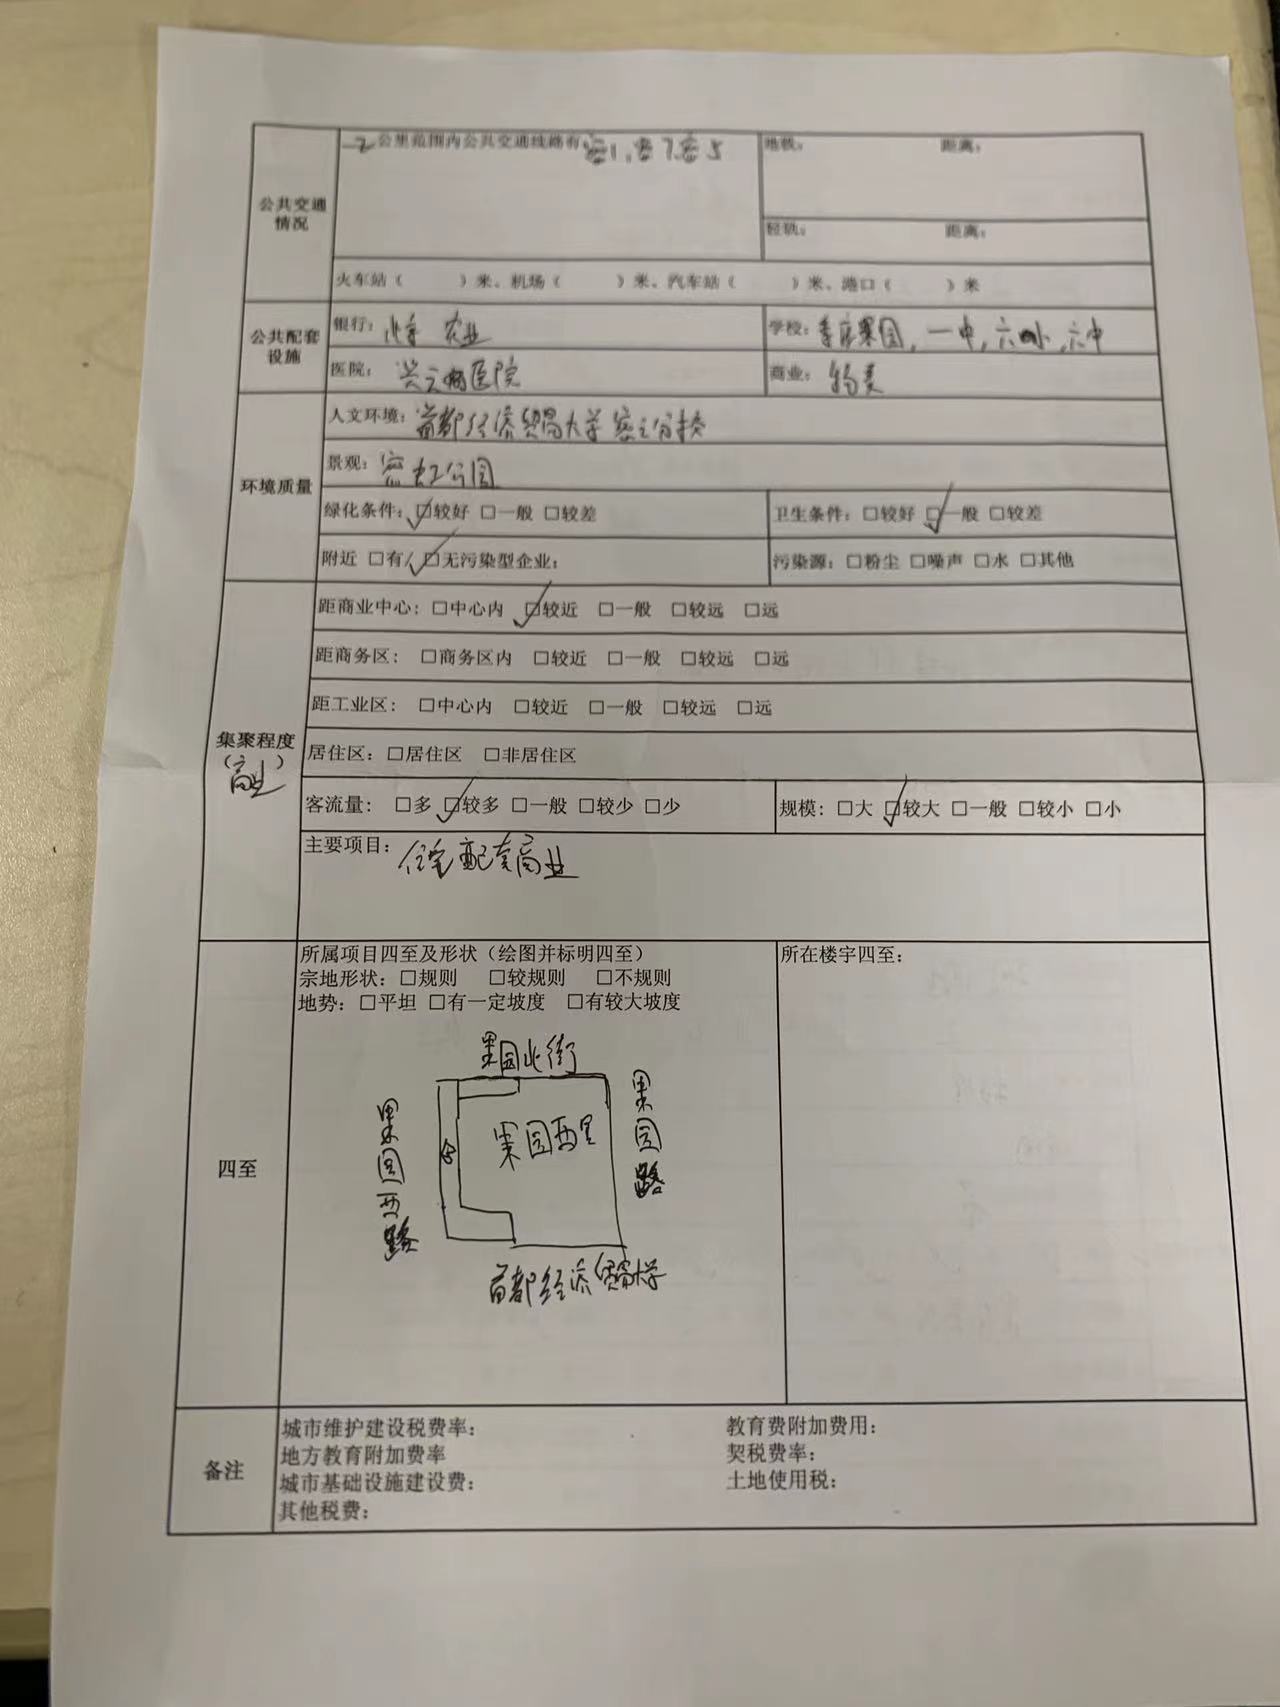 公共交通情况
2公里范围内公共交通线路有密1、密7、密5
地铁： 距离：
轻轨： 距离：
火车站（ ）米、机场（ ）米、汽车站（ ）米、港口（ ）米
公共配套设施
银行： 农业
学校： 果园，一中，六小，六中
医院： 医院
商业：物美
环境质量
人文环境：首都经济贸易大学密云分校
景观：密虹公园
绿化条件：☑较好 □一般 □较差
卫生条件：□较好 ☑一般 □较差
附近 □有/☑无污染型企业：
污染源：□粉尘 □噪声 □水 □其他
集聚程度
（商业）
距商业中心：□中心内 ☑较近 □一般 □较远 □远
距商务区：□商务区内 □较近 □一般 □较远 □远
距工业区：□中心内 □较近 □一般 □较远 □远
居住区：□居住区 □非居住区
客流量：□多 ☑较多 □一般 □较少 □少
规模：□大 ☑较大 □一般 □较小 □小
主要项目：住宅配套商业
四至
所属项目四至及形状（绘图并标明四至）
宗地形状：□规则 □较规则 □不规则
地势：□平坦 □有一定坡度 □有较大坡度
所在楼宇四至：
果园北街
果园西路
果园西里
果园路
首都经济贸易大学
备注
城市维护建设税费率： 教育费附加费用：
地方教育附加费率 契税费率：
城市基础设施建设费： 土地使用税：
其他税费：